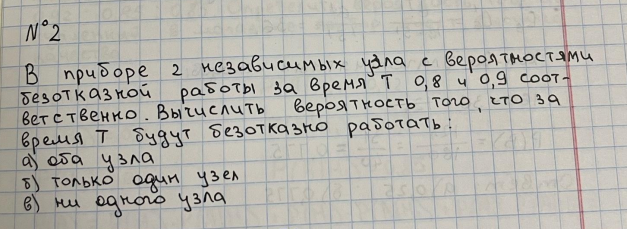 N°2
В приборе 2 независимых узла с вероятностями
безотказной работы за время Т 0,8 и 0,9 соот-
ветственно. Вычислить вероятность того, что за
время Т будут безотказно работать:
а) оба узла
б) только один узел
в) ни одного узла